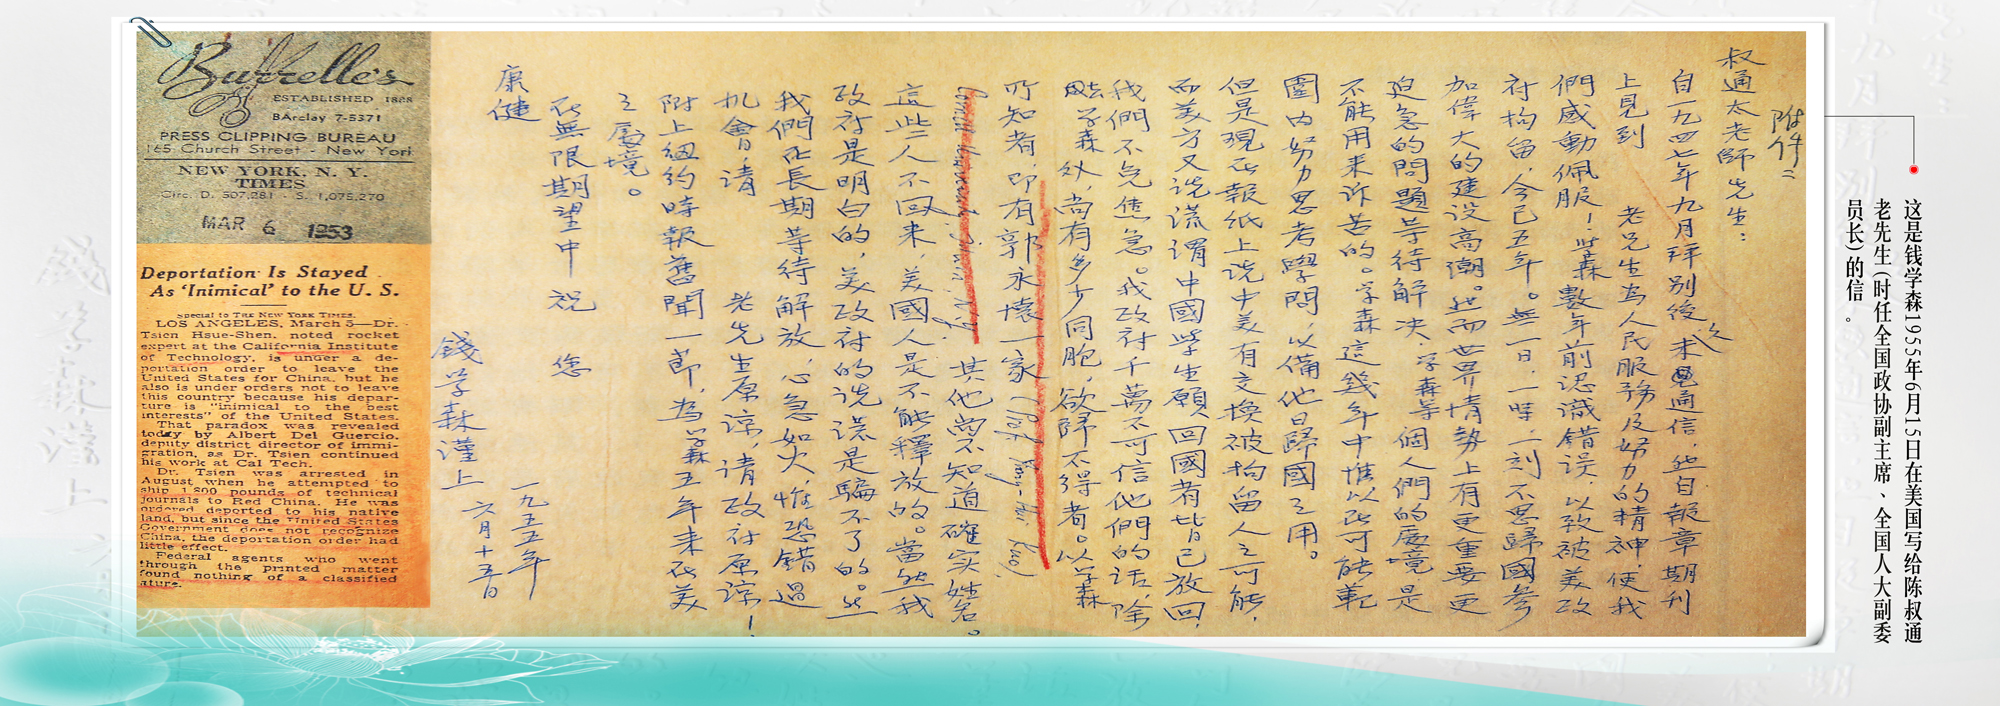 这是钱学森1955年6月15日在美国写给陈叔通
老先生(时任全国政协副主席、全国人大副委
员长)的信。
附件二
叔通太老師先生：
自一九四七年九月拜別後久未通信，然自報章期刊
上見到 老先生為人民服務及努力的精神，使我
們感動佩服！学森數年前認識錯误，以致被美政
府拘留，今已五年。無一日、一時、一刻不思歸國參
加偉大的建设高潮。然而世界情勢上有更重要更
迫急的問題等待解决，学森等個人們的處境是
不能用来诉苦的。学森這幾年中惟以在可能範
圍内努力思考學問，以備他日歸國之用。
但是現在報紙上说中美有交换被拘留人之可能，
而美方又说謊謂中國学生願回國者皆已放回，
我們不免焦急。我政府千萬不可信他們的話，除
学森外，尚有多少同胞，欲歸不得者。以学森
所知者，即有郭永懷一家（Prof. Yung-Huai Kuo），
其他尚不知道確实姓名。
這些人不回来，美國人是不能釋放的。當然我
政府是明白的，美政府的说謊是騙不了的。然
我們在長期等待解放，心急如火，惟恐錯過
机會，请 老先生原諒，请政府原諒！
附上纽约時報舊聞一節，為学森五年来在美
之處境。
在無限期望中祝 您
康健
錢学森谨上
一九五五年
六月十五日
Burrelle's
ESTABLISHED 1888
BArclay 7-5371
PRESS CLIPPING BUREAU
165 Church Street - New York
NEW YORK, N. Y.
TIMES
Circ. D. 507,281 - S. 1,075,270
MAR 6 1953
Deportation Is Stayed
As 'Inimical' to the U. S.
Special to THE NEW YORK TIMES.
LOS ANGELES, March 5—Dr.
Tsien Hsue-Shen, noted rocket
expert at the California Institute
of Technology, is under a de-
portation order to leave the
United States for China, but he
also is under orders not to leave
this country because his depar-
ture is "inimical to the best
interests" of the United States.
That paradox was revealed
today by Albert Del Guercio,
deputy district director of immi-
gration, as Dr. Tsien continued
his work at Cal Tech.
Dr. Tsien was arrested in
August when he attempted to
ship 1,800 pounds of technical
journals to Red China. He was
ordered deported to his native
land, but since the United States
Government does not recognize
China, the deportation order had
little effect.
Federal agents who went
through the printed matter
found nothing of a classified
nature.